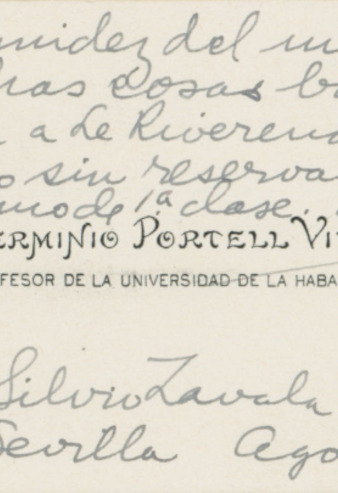 midez del m
has cosas b
a Le Riverend
o sin reserva
mo de 1ª clase.
ERMINIO PORTELL VI
FESOR DE LA UNIVERSIDAD DE LA HABA
Silvio Zavala
Sevilla Ago